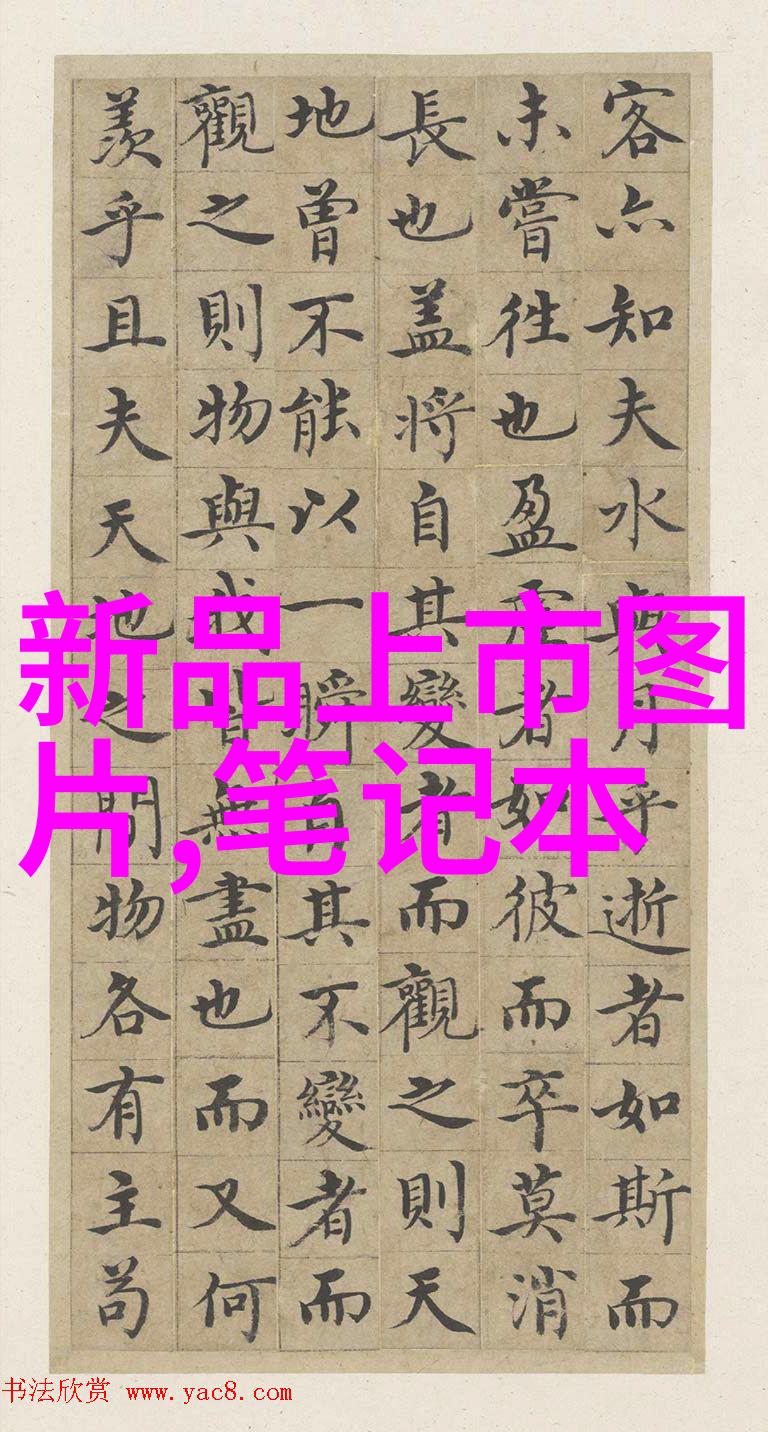 客亦知夫水與月乎逝者如斯而
未嘗往也盈虛者如彼而卒莫消
長也盖将自其變者而觀之則天
地曾不能以一瞬自其不變者而
觀之則物與我皆無盡也而又何
羨乎且夫天地之間物各有主苟
新品上市图
片,笔记本
书法欣赏 www.yac8.com